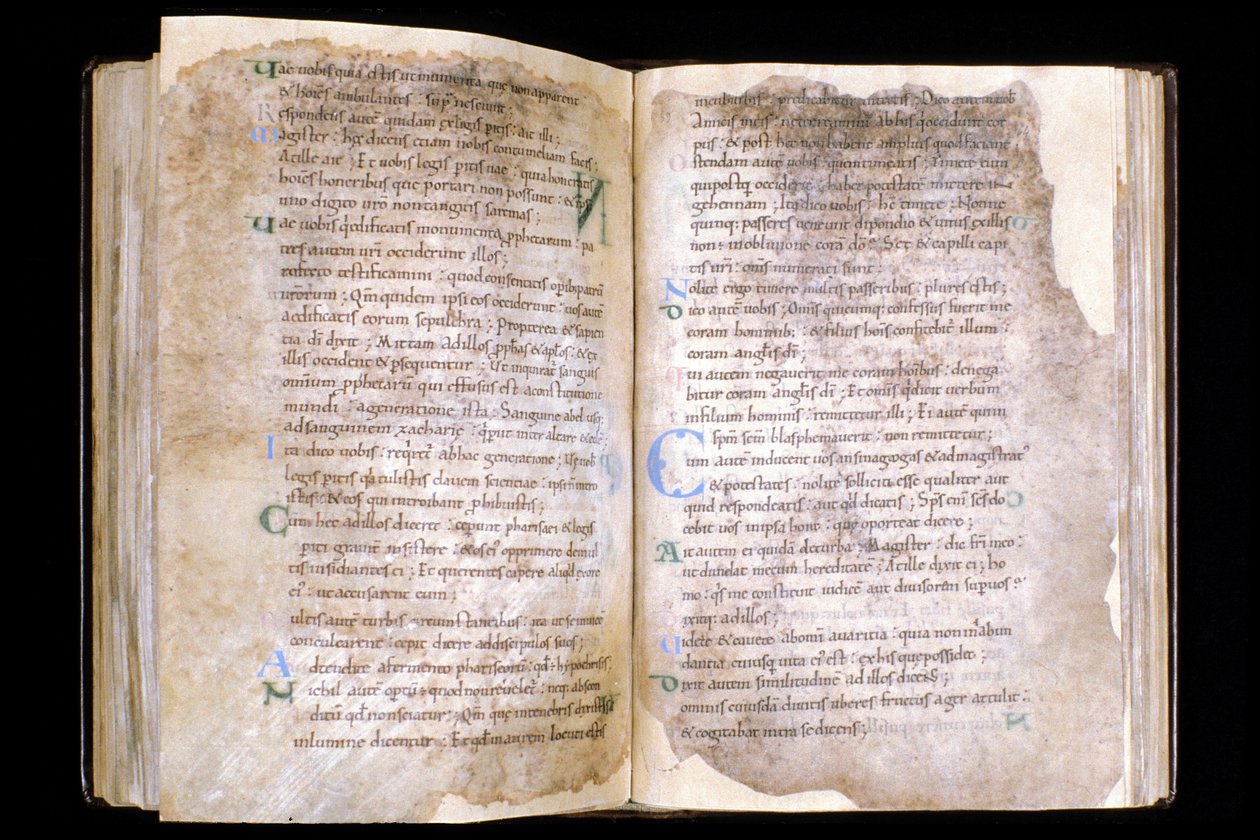 Vae uobis quia estis ut monumenta que non apparent
& hoies ambulantes : sup nesciunt ;
Respondens aute quidam ex legis pitis : ait illi ;
Magister : hęc dicens etiam nobis contumeliam facis ;
At ille ait ; Et uobis legis pitis uae : quia honeratis
hoies honeribus que portari non possunt : & ipsi
uno digito uro non tangitis sarcinas ;
Vae uobis qd edificatis monumenta pphetarum : pa
tres autem uri occiderunt illos ;
testificamini : quod consentitis opib patru
urorum ; Qm quidem ipsi eos occiderunt : uos aute
aedificatis eorum sepulchra ; Propterea & sapien
tia di dixit ; Mittam ad illos pphas & aplos : & ex
illis occident & psequentur ; Ut inquirat sanguis
omnium pphetaru qui effusus est a constitutione
mundi : a generatione ista ; Sanguine abel usq;
ad sanguinem zacharię : qi piit inter altare & ędē ;
Ita dico uobis : requiret ab hac generatione ; Vae uob
legis pitis qa tulistis clauem scienciae : ipsi n intro
istis : & eos qui introibant phibuistis ;
Cum hec ad illos diceret : ceperunt pharisaei & legis
piti grauit insistere : & os ei opprimere de mul
tis insidiantes ei ; Et querentes capere aliqd ex ore
ei : ut accusarent eum ;
ultis aute turbis circumstantibus : ita ut se inuice
conculcarent : cepit dicere ad discipulos suos ;
Adtendite a fermento phariseoru : qd hypochrisis ;
Nichil aute optu : quod non reueler : neq; abscon
ditu qd non sciatur ; Qm que in tenebris dixistis
in lumine dicentur : Et qd in aurem locuti estis
in cubiculis : predicabitur in tectis ; Dico autem uob
Amicis meis : ne terreamini ab his qi occidunt cor
pus : & post hec non habent amplius quod faciant ;
Ostendam aute uobis : quem timeatis ; Timete eum
qui postq occiderit : habet potestate mittere in
gehennam ; Ita dico uobis : hc timete ; Nonne
quinq; passeres ueneunt dipondio & unus ex illis
non in obliuione cora do ; Set & capilli capi
tis uri : oms numerati sunt ;
Nolite ergo timere multis passeribus : plures estis ;
Dico aute uobis ; Omis quicumq; confessus fuerit me
coram hominib; : & filius hois confitebit illum :
coram anglis di ;
Qui autem negauerit me coram hoibus : denega
bitur coram anglis di ; Et omis qi dicit uerbum
in filium hominis : remittetur illi ; Ei aute qui in
spm scm blasphemauerit : non remittetur ;
Cum aute inducent uos in sinagogas & ad magistrat
& potestates : nolite solliciti esse qualiter aut
quid respondeatis : aut qd dicatis ; Sps eni scs do
cebit uos in ipsa hora : que oporteat dicere ;
Ait autem ei quida de turba : Magister : dic fri meo :
ut diuidat mecum hereditate ; At ille dixit ei ; ho
mo : qs me constituit iudice aut diuisorem sup uos
Dixitq; ad illos ;
Videte & cauete ab omi auaritia : quia non in abun
dantia cuiusq uita ei est : ex his que possidet ;
Dixit autem similitudine ad illos dicens ;
ominis cuiusda diuitis uberes fructus ager attulit :
& cogitabat intra se dicens ;